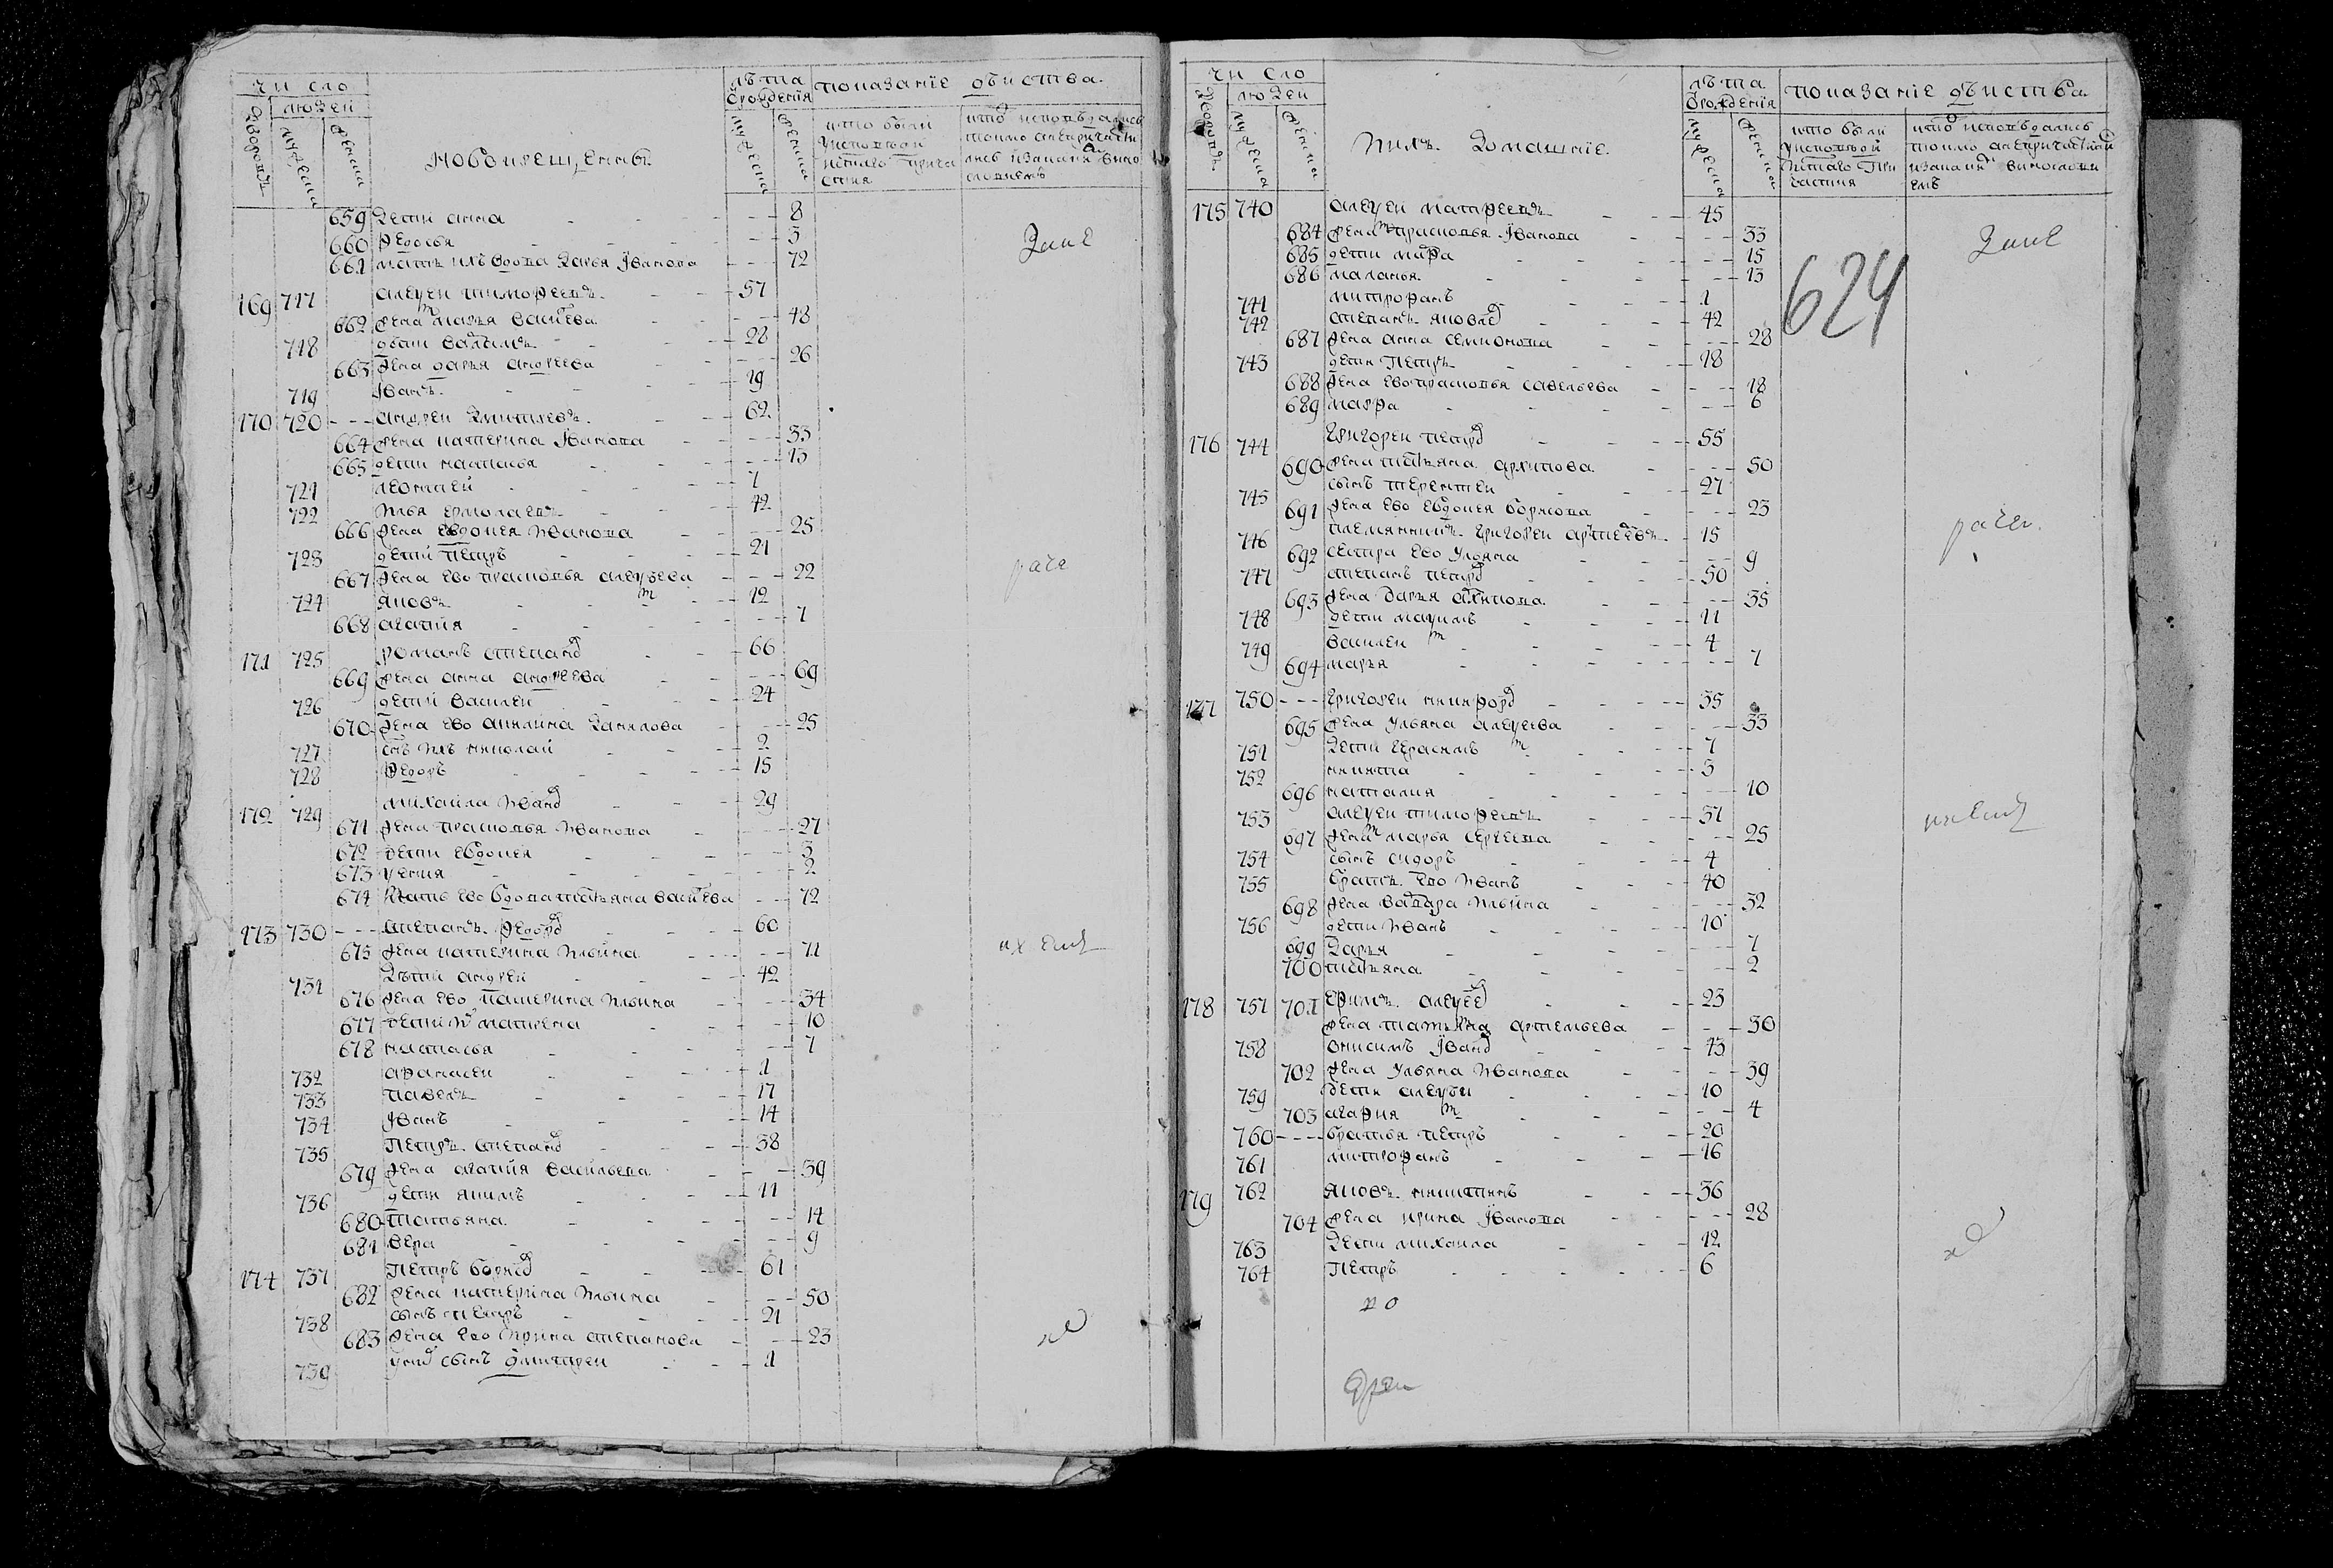 Число
людей
лѣта
ѿрожденїя
показанїе дѣиства
дворовъ
мужеска
женска
новокрещенны
мужеска
женска
кто были
уисповѣди
исвтаго прича
стия
659 дети анна 8
660 федосья 3
661 мать ихъ вдова дарья Iванова 72
169 717 алеѯеи тимофеевъ 57
662 жена марья васильева 48
718 дети вавилъ 28
663 жена дарья андреева 26
719 Iванъ 19
170 720 андреи дмитревъ 62
664 жена катерина Iванова 33
665 дети настасья 13
721 леонтеи 7
722 Илья ермолаевъ 42
666 жена евдокея Иванова 25
723 дети петръ 21
667 жена ево прасковья алеѯеева 22
724 яковъ 12
668 агапия 7
171 725 романъ степанов 66
669 жена анна андреева 69
726 дети василеи 24
670 жена ево акилина данилова 25
727 снъ ихъ николаи 2
728 федоръ 15
172 729 михаила Иванов 29
671 жена прасковья Иванова 27
672 дети евдокея 3
673 ѯения 2
674 мать ево вдова татьяна васильева 72
173 730 степанъ федоров 60
675 жена катерина Ильина 71
731 дѣти андреи 42
676 жена ево катерина Ильина 34
677 дети их матрена 10
678 настасья 7
732 афанасеи 1
733 павелъ 17
734 Iванъ 14
735 петръ степанов 38
679 жена агапия васильева 39
736 дети якимъ 11
680 татьяна 14
681 вера 9
174 737 петръ борисов 61
682 жена катерина Ильина 50
738 сынъ петръ 21
683 жена ево Ирина степанова 23
739 у них сынъ дмитреи 1
Число
людей
лѣта
ѿрожденїя
показанїе дѣиства
дворовъ
мужеска
женска
Ихъ домашние
мужеска
женска
кто были
уисповѣди
исвтаго При
частия
624
175 740 алеѯеи матфеевъ 45
684 жена прасковья Iванова 33
685 дети марфа 15
686 маланья 13
741 митрофанъ 1
742 степанъ яковлев 42
687 жена анна семионова 28
743 дети петръ 18
688 жена ево прасковья савельева 18
689 марфа 6
176 744 григореи петров 55
690 жена татьяна архипова 50
745 сынъ терентеи 27
691 жена ево евдокея борисова 23
746 племянникъ григореи артемевъ 15
692 сестра ево ульяна 9
747 степанъ петров 50
693 жена дарья архипова 35
748 дети маѯимъ 11
749 василеи 4
694 марья 7
177 750 григореи никифоров 35
695 жена ульяна алеѯеева 33
751 дети герасимъ 7
752 никита 3
696 наталия 10
753 алеѯеи тимофеевъ 37
697 жена марья сергеева 25
754 сынъ сидоръ 4
755 братъ ево Иванъ 40
698 жена варвара Ильина 32
756 дети Иванъ 10
699 дарья 7
700 татьяна 2
178 757 701 ефимъ алеѯеев 23
жена татьяна артемьева 30
758 онисимъ Iванов 43
702 жена ульяна Иванова 39
759 дети алеѯеи 10
703 агафия 4
760 братья петръ 20
761 митрофанъ 16
179 762 яковъ никитинъ 36
704 жена ирина Iванова 28
763 дети михаила 12
764 Петръ 6